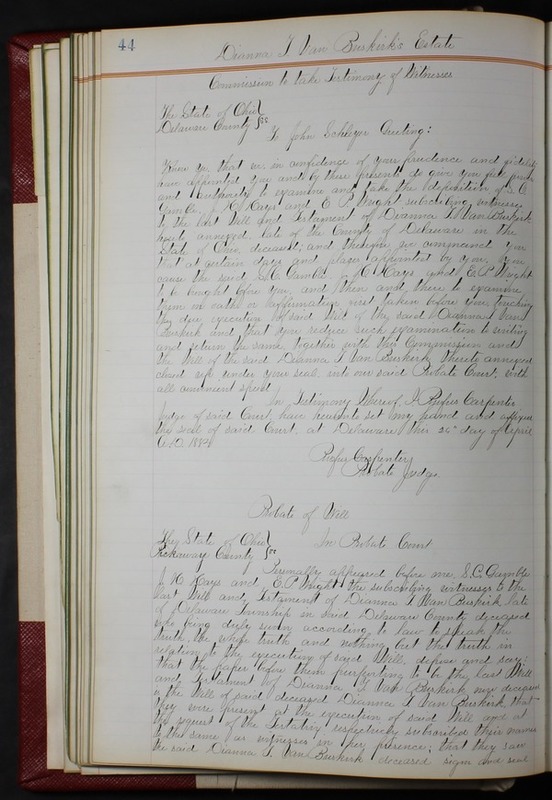 44
Dianna T Van Buskirk's Estate
Commission to take Testimony of Witnesses
The State of Ohio }
Delaware County } ss
To John Schleyer Greeting:
Know ye that we in confidence of your prudence and fidelity
have appointed you and by these presents do give you full power
and authority to examine and take the deposition of S. C.
Gamble, J. H. Cays and E P Wright subscribing witnesses
to the last Will and Testament of Dianna T. Van Buskirk
hereto annexed, late of the County of Delaware in the
State of Ohio, deceased, and therefore we command you
that at certain days and places appointed by you, you
cause the said S. C. Gamble, J. H. Cays and E. P. Wright
to be brought before you, and then and there to examine
them on oath or affirmation first taken before you, touching
the due execution of said Will of the said Dianna T Van
Buskirk and that you reduce such examination to writing
and return the same, together with this Commission and
the Will of the said Dianna T Van Buskirk thereto annexed
closed up under your seal into our said Probate Court, with
all convenient speed.
In Testimony Whereof, I Rufus Carpenter
Judge of said Court, have hereunto set my hand and affixed
the seal of said Court, at Delaware this 26" day of April
A.D. 1884
Rufus Carpenter
Probate Judge
Probate of Will
The State of Ohio }
Pickaway County } ss
In Probate Court
Personally appeared before me S. C. Gamble
J. H. Cays and E. P. Wright the subscribing witnesses to the
last Will and Testament of Dianna T. Van Buskirk late
of Delaware Township in said Delaware County deceased
who being duly sworn according to law to speak the
truth, the whole truth and nothing but the truth in
relation to the execution of said Will, depose and say:
that the paper before them purporting to be the last Will
and Testament of Dianna T Van Buskirk now deceased
is the Will of said deceased Dianna T Van Buskirk that
they were present at the execution of said Will and at
the request of the Testatrix respectively subscribed their names
to the same as witnesses in her presence; that they saw
the said Dianna T. Van Buskirk deceased sign and seal